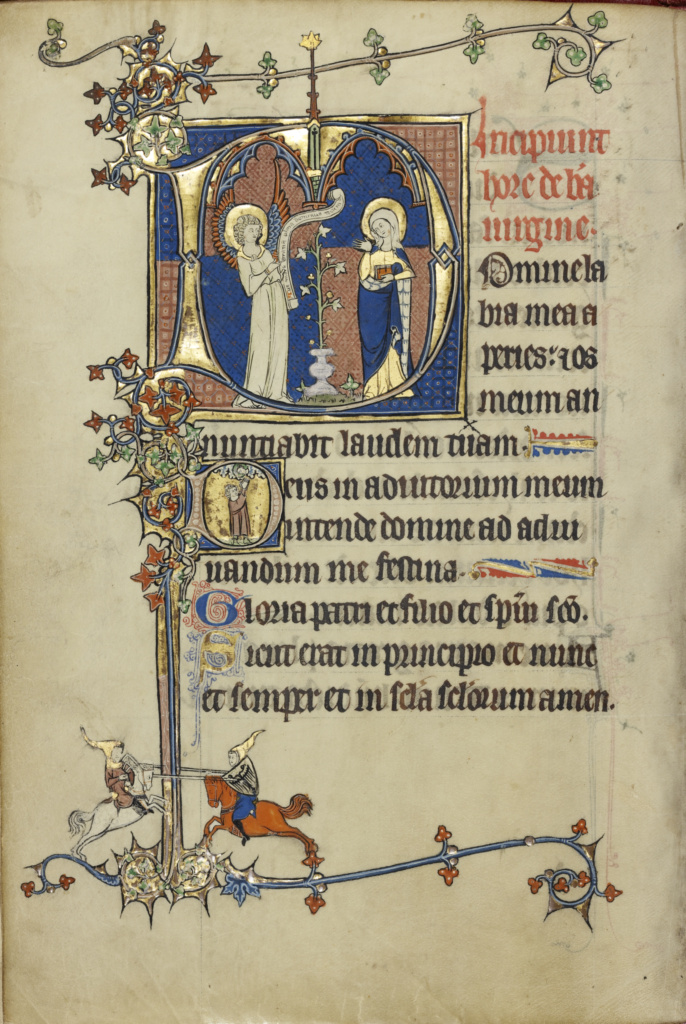 Incipiunt
hore de b̄a
uirgine.
Domine la
bia mea a
peries: ⁊ os
meum an
nuntiabit laudem tuam.
Deus in adiutorium meum
intende domine ad adiu
uandum me festina.
Gloria patri et filio et sp̄u sc̄o.
Sicut erat in principio et nunc
et semper et in sc̄la sc̄lorum amen.